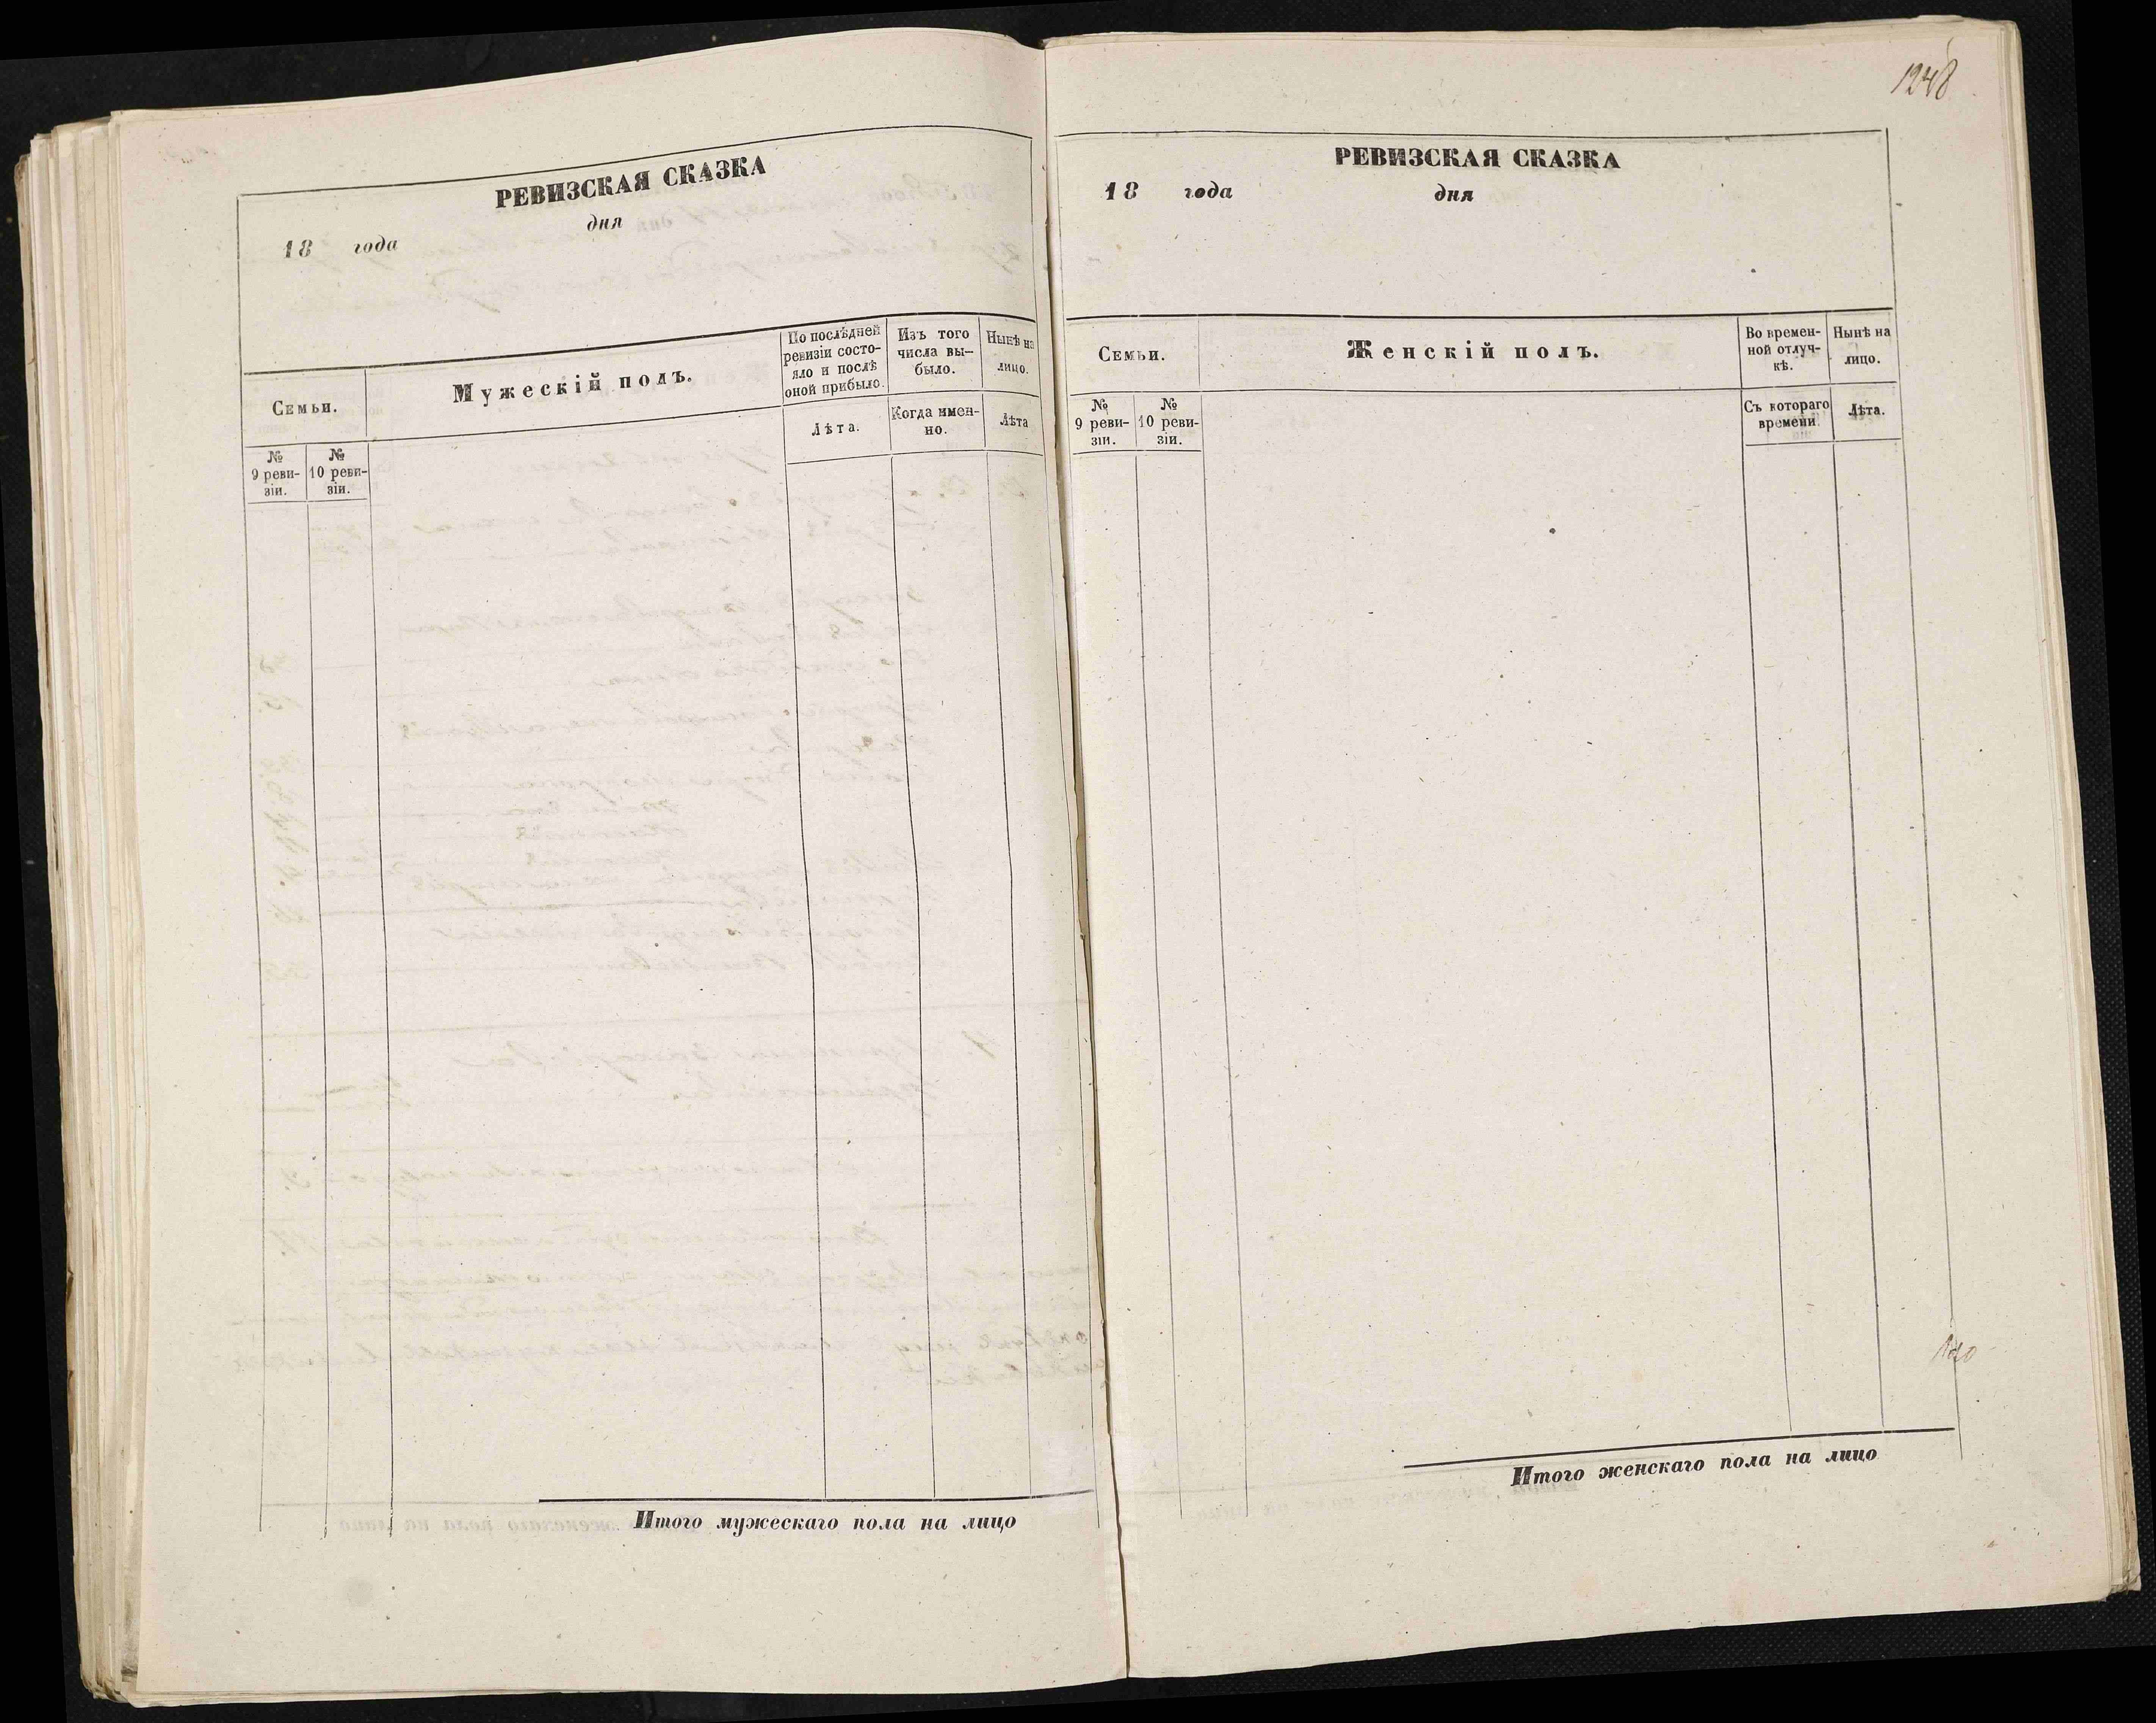 РЕВИЗСКАЯ СКАЗКА
18 года дня
Семьи.
Мужескій полъ.
По послѣдней
ревизіи состо-
яло и послѣ
оной прибыло.
Изъ того
числа вы-
было.
Нынѣ на
лицо.
Лѣта.
Когда имен-
но.
Лѣта
№
9 реви-
зіи.
№
10 реви-
зіи.
Итого мужескаго пола на лицо
1248
РЕВИЗСКАЯ СКАЗКА
18 года дня
Семьи.
Женскій полъ.
Во времен-
ной отлуч-
кѣ.
Нынѣ на
лицо.
№
9 реви-
зіи.
№
10 реви-
зіи.
Съ котораго
времени.
Лѣта.
Итого женскаго пола на лицо